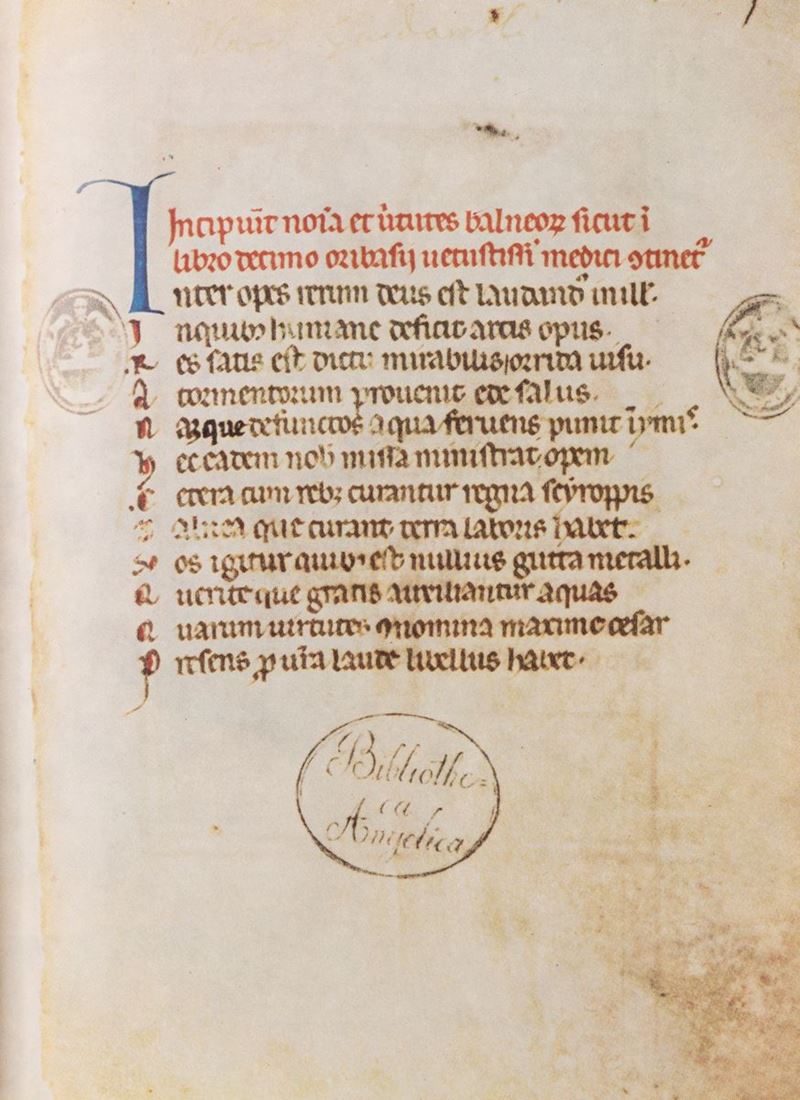 Incipiu͞t no͞ia et u͞itutes balneoꝝ sicut ī
libro decimo oribasij uetustissi͞ medici ꝯtinet᷑
Inter opes rerum deus est laudand᷒ in ill᷒.
Inquib᷒ humane deficit artis opus.
Res satis est dictu mirabilis orrida uisu.
Tormentorum prouenit ede salus.
Nāque defunctos aqua feruens punit ī
Hec eadem nob̄ missa ministrat opem
Cetera cum rebꝫ curantur regna scyroppis
Balnea que curant terra laboris habet.
Vos igitur quib᷒ est nullius gutta metalli.
Querite que gratis auxiliantur aquas
Quarum uirtutes ꝯ nomina maxime cesar
Presens ꝓ u͞ra laude libellus habet.
Bibliothe-
ca
Angelica